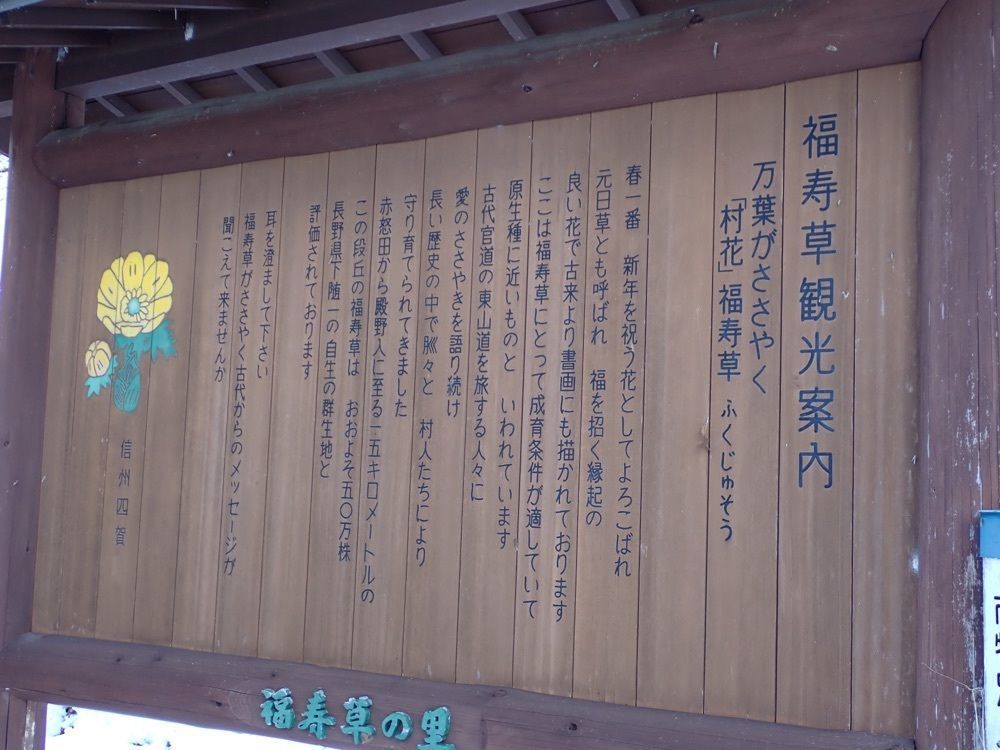 福寿草観光案内
万葉がささやく
「村花」福寿草 ふくじゅそう
春一番 新年を祝う花としてよろこばれ
元日草とも呼ばれ 福を招く縁起の
良い花で古来より書画にも描かれております
ここは福寿草にとって成育条件が適していて
原生種に近いものと いわれています
古代官道の東山道を旅する人々に
愛のささやきを語り続け
長い歴史の中で脈々と 村人たちにより
守り育てられてきました
赤怒田から殿野入に至る一五キロメートルの
この段丘の福寿草は おおよそ五〇万株
長野県下随一の自生の群生地と
評価されております
耳を澄まして下さい
福寿草がささやく古代からのメッセージが
聞こえて来ませんか
信州四賀
福寿草の里